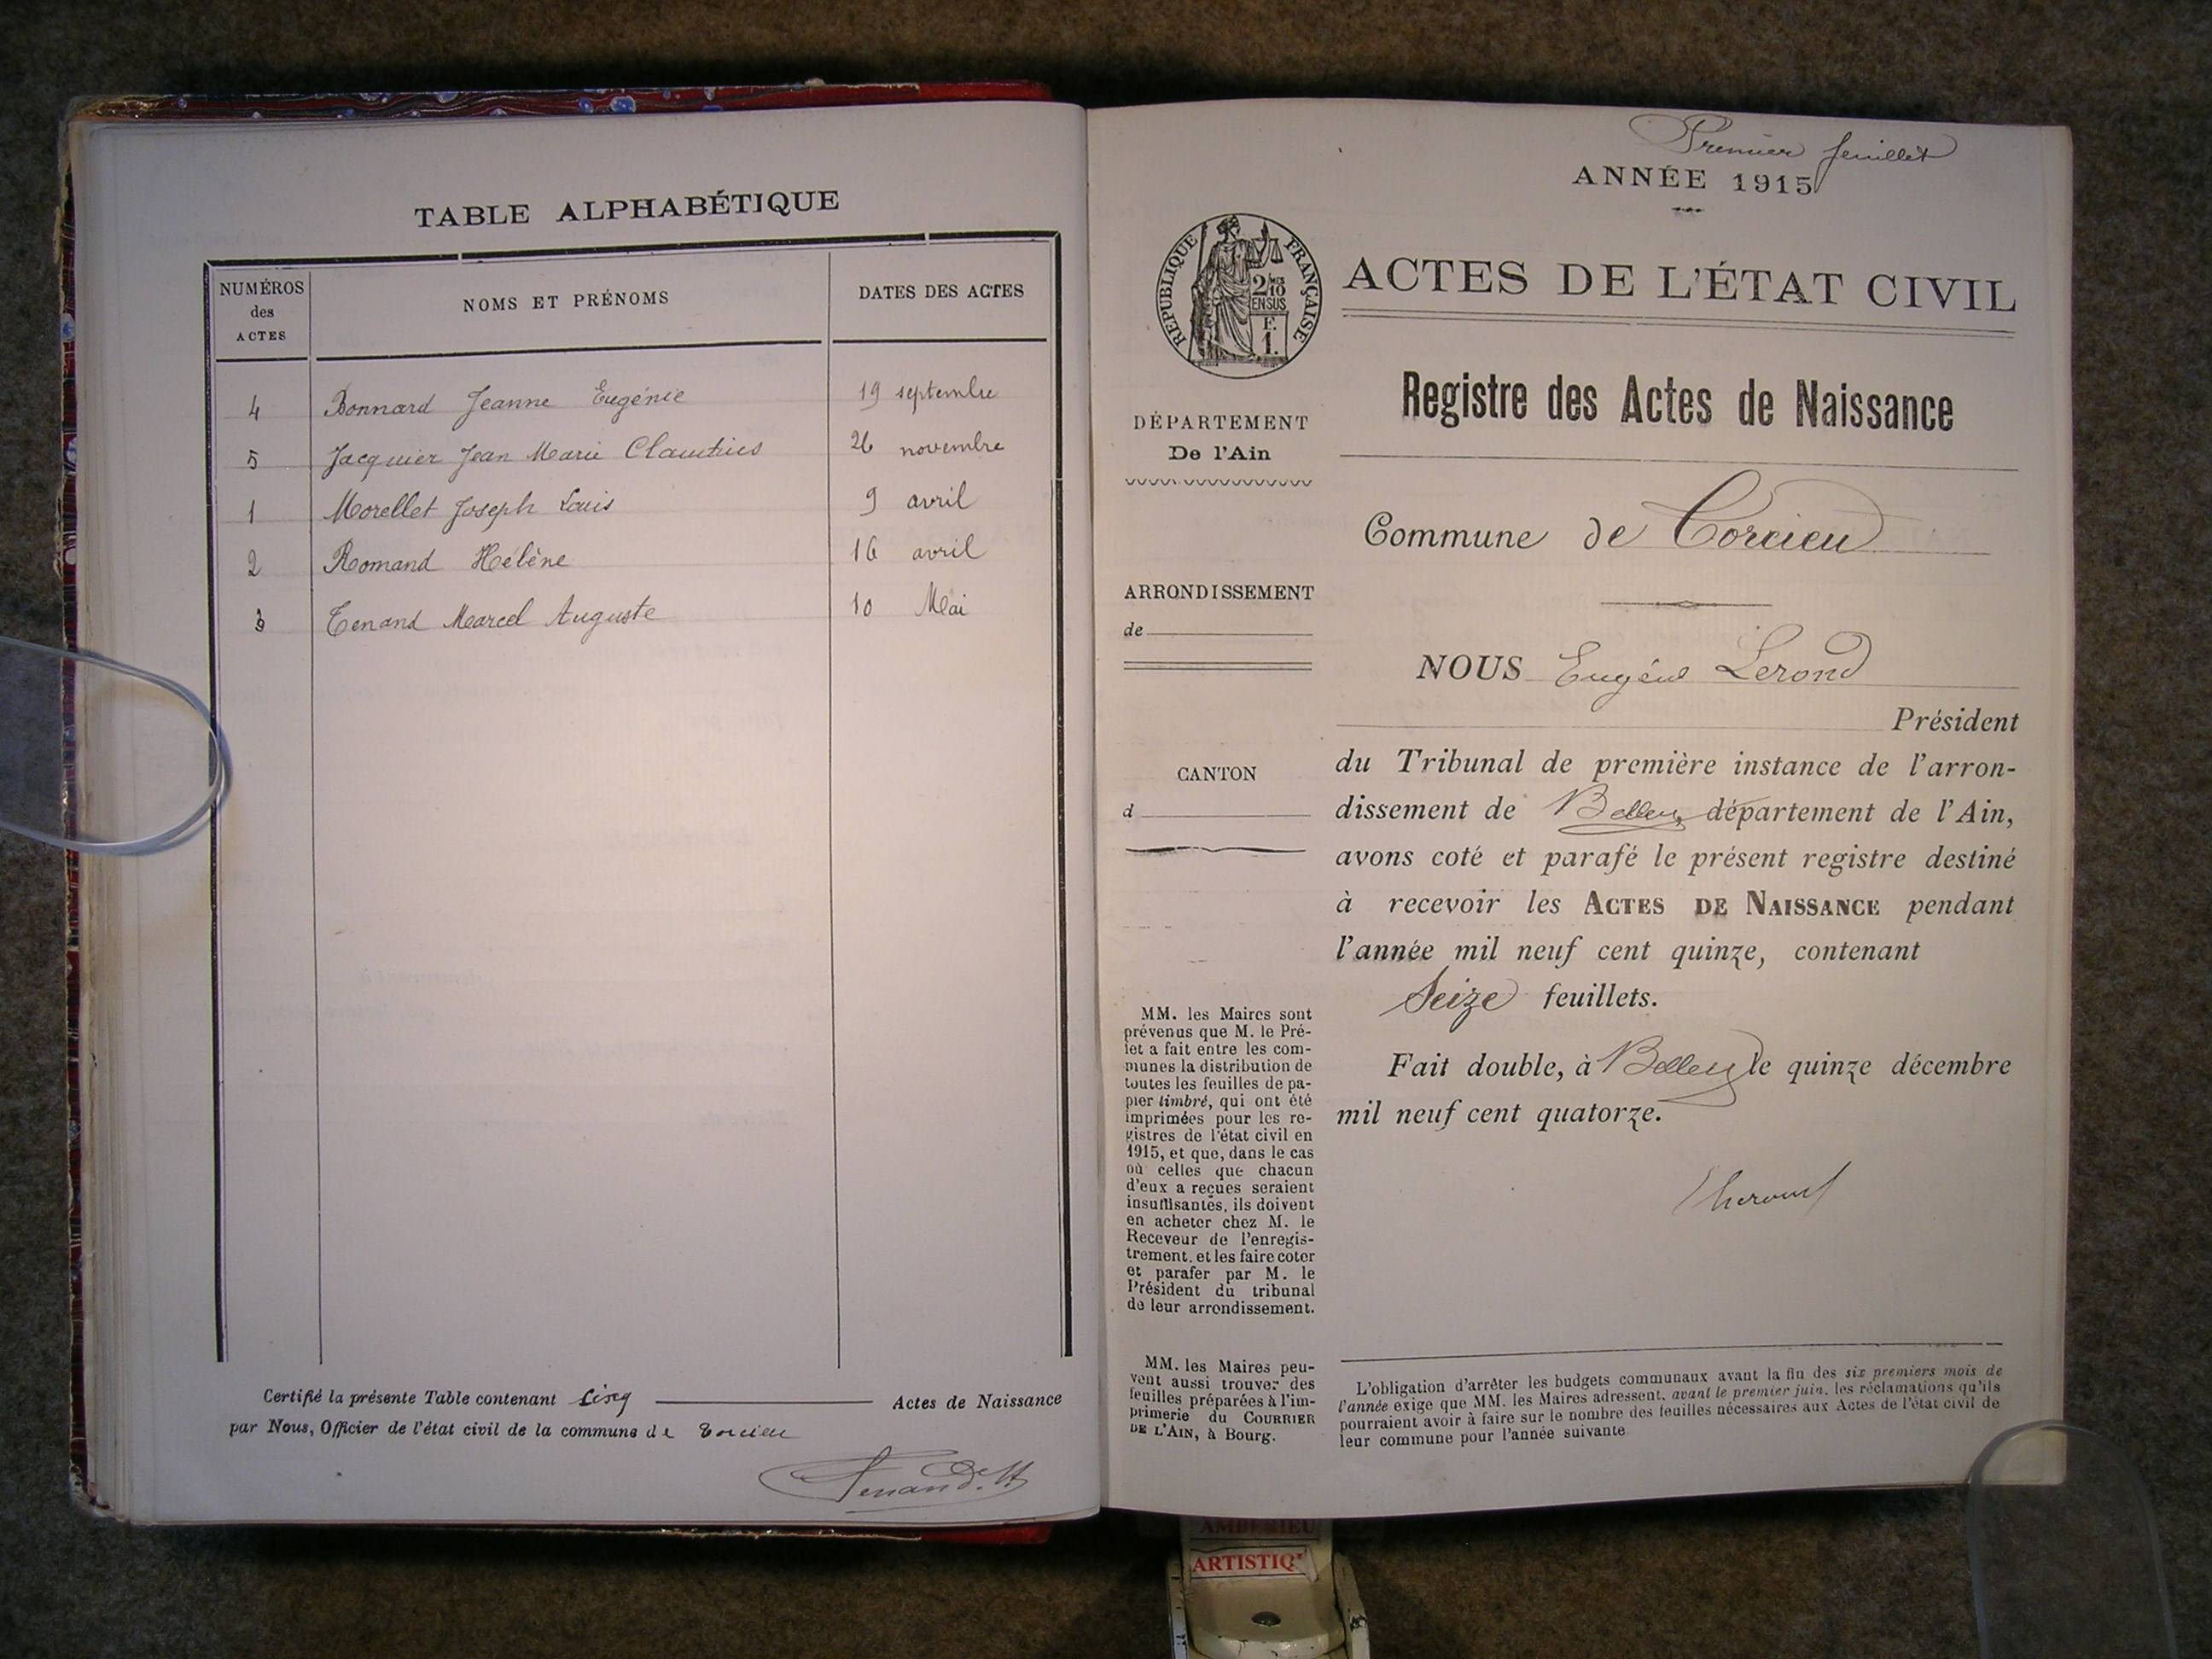 TABLE ALPHABÉTIQUE
NUMÉROS
des
ACTES
NOMS ET PRÉNOMS
DATES DES ACTES
4 Bonnard Jeanne Eugénie 19 septembre
5 Jacquier Jean Marie Claudius 26 novembre
1 Morellet Joseph Louis 9 avril
2 Romand Hélène 16 avril
3 Tenand Marcel Auguste 10 Mai
Certifié la présente Table contenant cinq Actes de Naissance
par Nous, Officier de l'état civil de la commune de Torcieu
Tenand
Premier feuillet
ANNÉE 1915
RÉPUBLIQUE FRANÇAISE
2/10
EN SUS
F.
1.
ACTES DE L'ÉTAT CIVIL
Registre des Actes de Naissance
DÉPARTEMENT
De l'Ain
Commune de Torcieu
ARRONDISSEMENT
de
NOUS Eugène Lerond
Président
CANTON
d
du Tribunal de première instance de l'arron-
dissement de Belley, département de l'Ain,
avons coté et parafé le présent registre destiné
à recevoir les ACTES DE NAISSANCE pendant
l'année mil neuf cent quinze, contenant
Seize feuillets.
Fait double, à Belley le quinze décembre
mil neuf cent quatorze.
MM. les Maires sont
prévenus que M. le Pré-
fet a fait entre les com-
munes la distribution de
toutes les feuilles de pa-
pier timbré, qui ont été
imprimées pour les re-
gistres de l'état civil en
1915, et que, dans le cas
où celles que chacun
d'eux a reçues seraient
insuffisantes, ils doivent
en acheter chez M. le
Receveur de l'enregis-
trement, et les faire coter
et parafer par M. le
Président du tribunal
de leur arrondissement.
MM. les Maires peu-
vent aussi trouver des
feuilles préparées à l'im-
primerie du COURRIER
DE L'AIN, à Bourg.
L'obligation d'arrêter les budgets communaux avant la fin des six premiers mois de
l'année exige que MM. les Maires adressent, avant le premier juin, les réclamations qu'ils
pourraient avoir à faire sur le nombre des feuilles nécessaires aux Actes de l'état civil de
leur commune pour l'année suivante
AMBERIEU
ARTISTIQ'